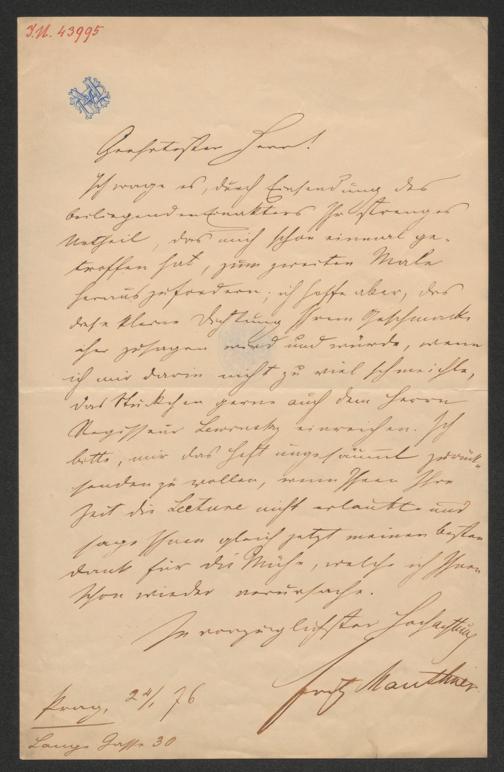 I.N. 43995
Geehrtester Herr!
Ich wage es, durch Einsendung des
beiliegenden Einakters Ihr strenges
Urtheil, das mich schon einmal ge-
troffen hat, zum zweiten Male
herauszufordern; ich hoffe aber, das
diese kleine Dichtung Ihrem Geschmacke
eher zusagen wird und würde, wenn
ich mir darin nicht zu viel schmeichle,
das Stückchen gerne auch dem Herrn
Regisseur Lewinsky einreichen. Ich
bitte, mir das Heft ungesäumt zurück-
senden zu wollen, wenn Ihnen Ihre
Zeit die Lecture nicht erlaubt und
sage Ihnen gleich jetzt meinen besten
Dank für die Mühe, welche ich Ihnen
schon wieder verursache.
In vorzüglichster Hochachtung
Fritz Mauthner
Prag, 24/1 76
Lange Gasse 30